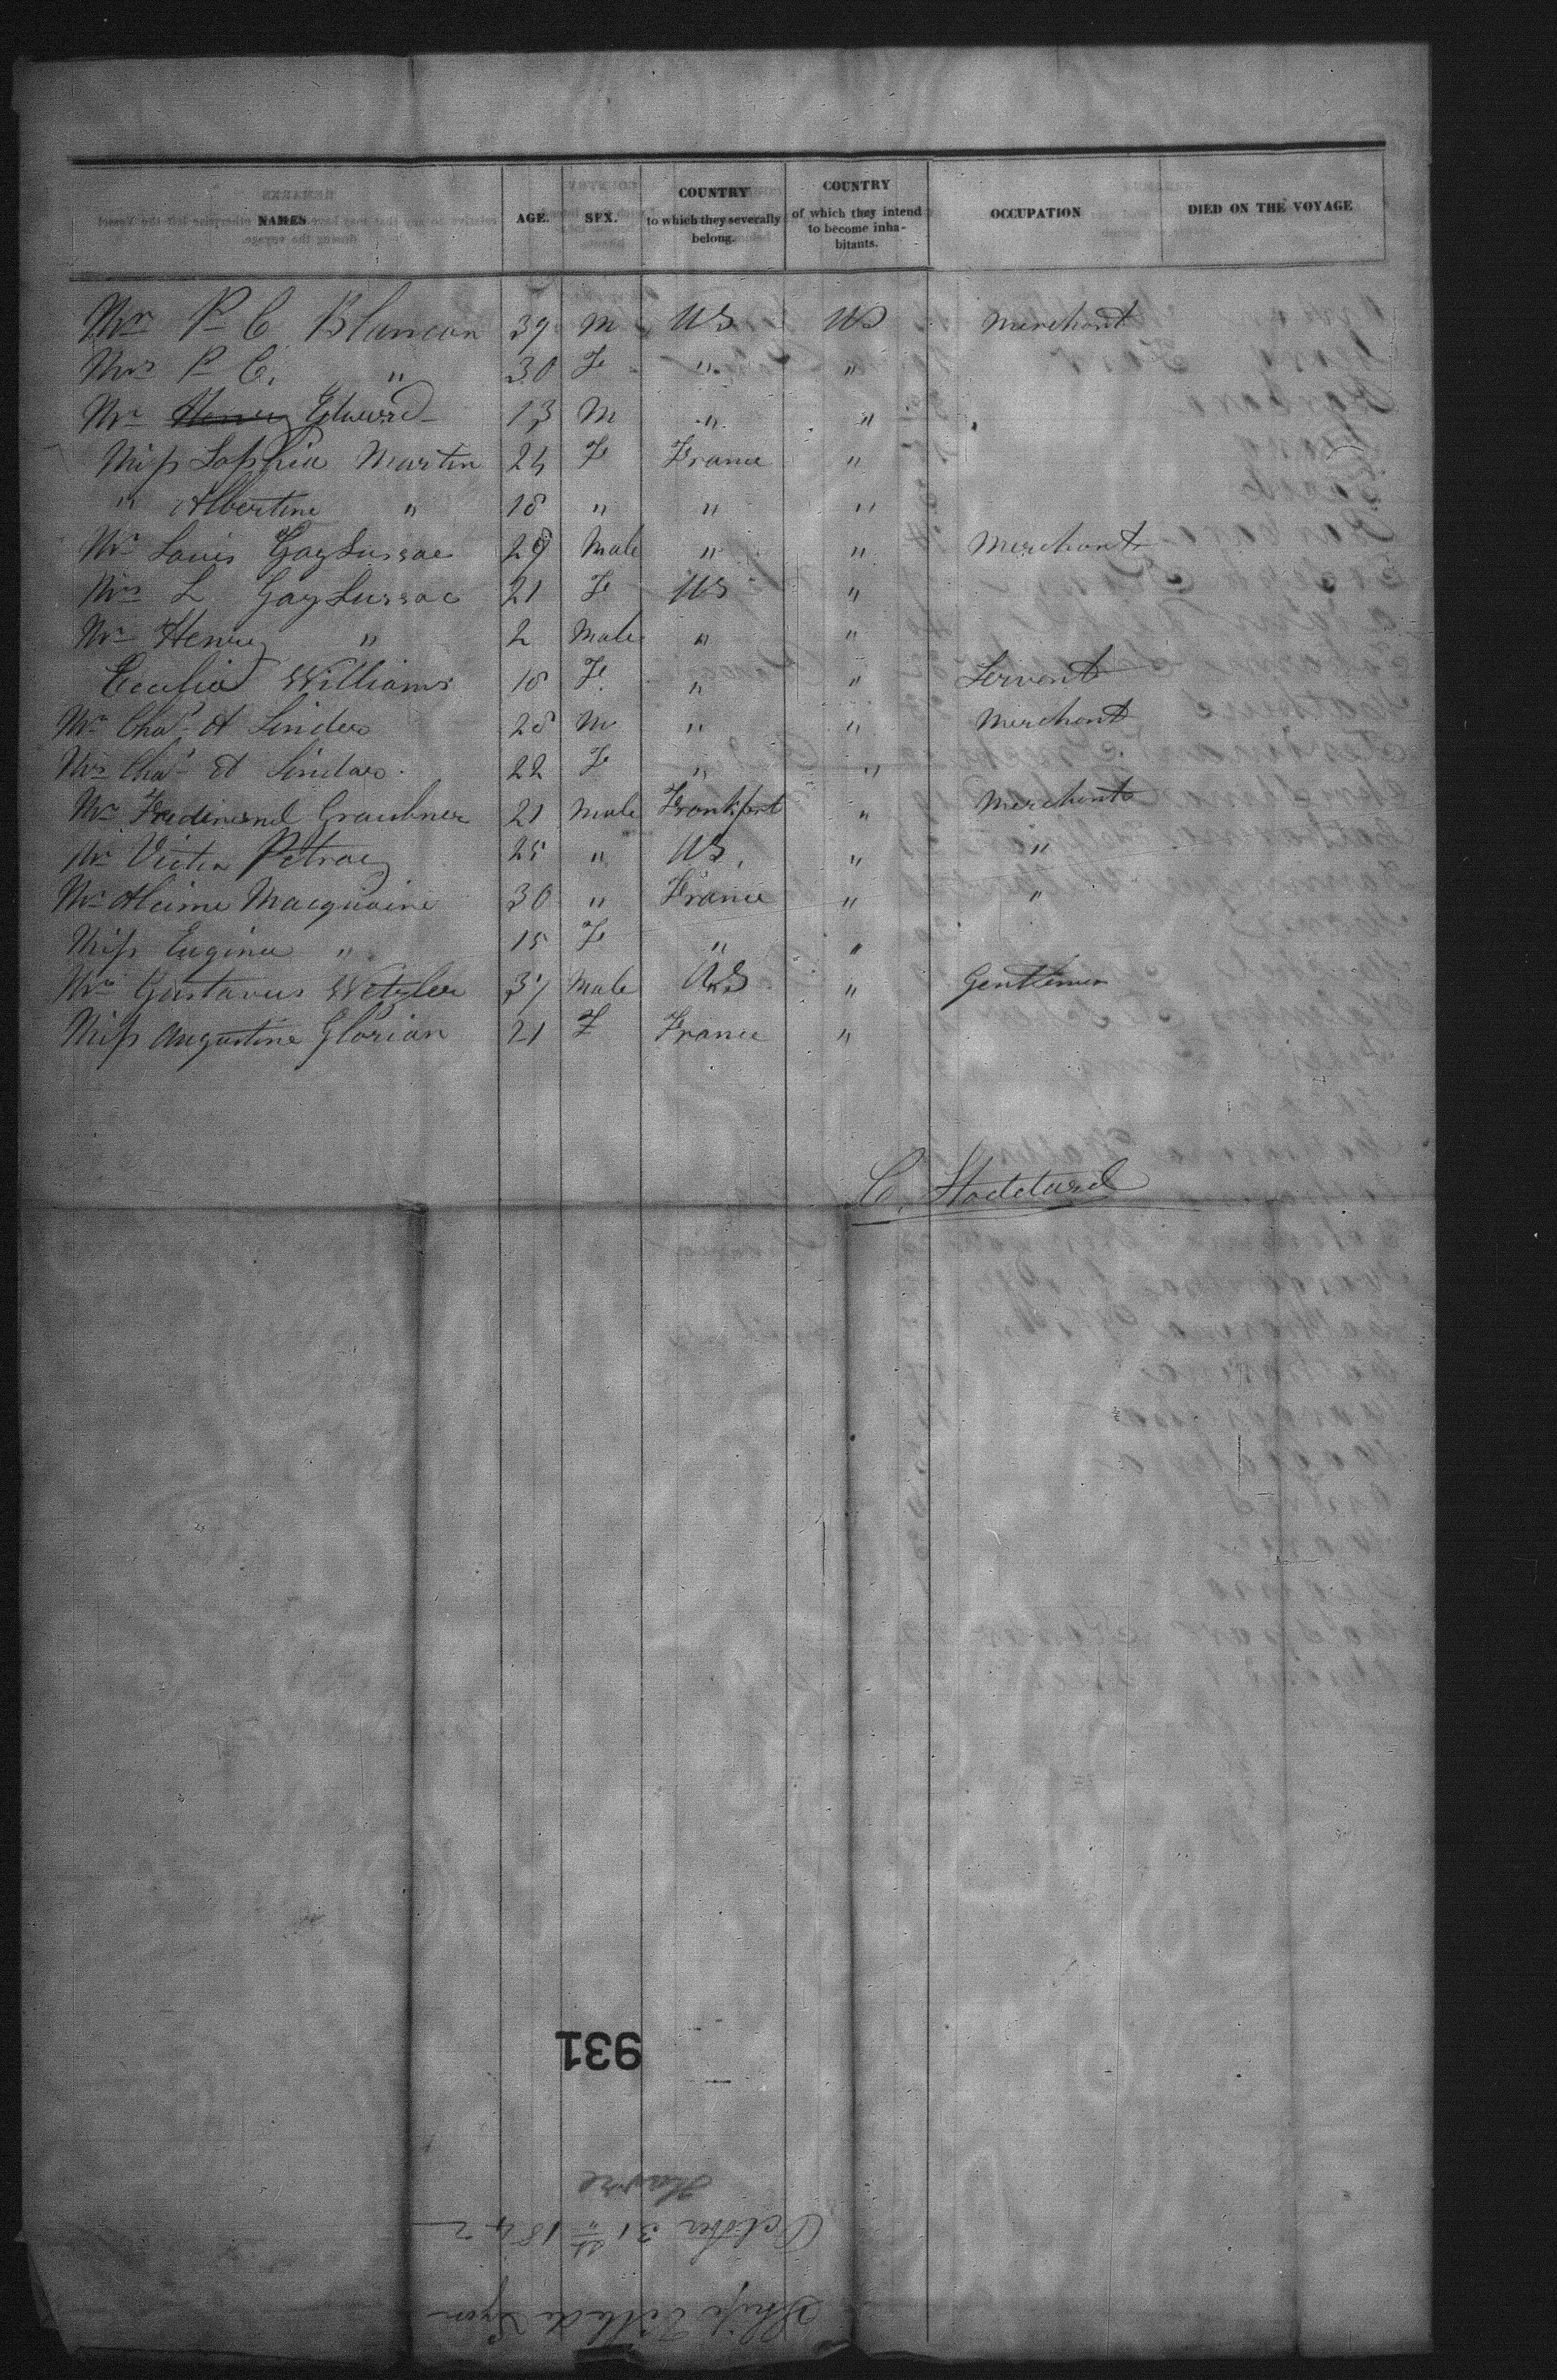 NAMES AGE. SEX. COUNTRY to which they severally belong. COUNTRY of which they intend to become inhabitants. OCCUPATION DIED ON THE VOYAGE
Mr P C Blancan 39 M US US Merchant
Mrs P C. " 30 F " "
Mr Henry Edward 13 M " "
Miss Sophia Martin 24 F France "
" Albertine " 18 " " "
Mr Louis Gay Lussac 29 Male " " Merchant
Mrs L Gay Lussac 21 F US "
Mr Henry " 2 Male " "
Cecelia Williams 18 F. " " Servent
Mr Chas A Sinders 28 M " " Merchant
Mrs Chas A Sinders 22 F " "
Mr Fredinend Graubner 21 Male Frankfort " Merchant
Mr Victor Petray 25 " US, " "
Mr Alcime Macquaire 30 " France " "
Miss Euginee " 15 F " "
Mr Gustavus Wetzler 37 Male US " Gentlemen
Miss Augustine Glorian 21 F France "
C. Stoddard
931
Havre
October 31st 1842
Ship Ville de Lyon